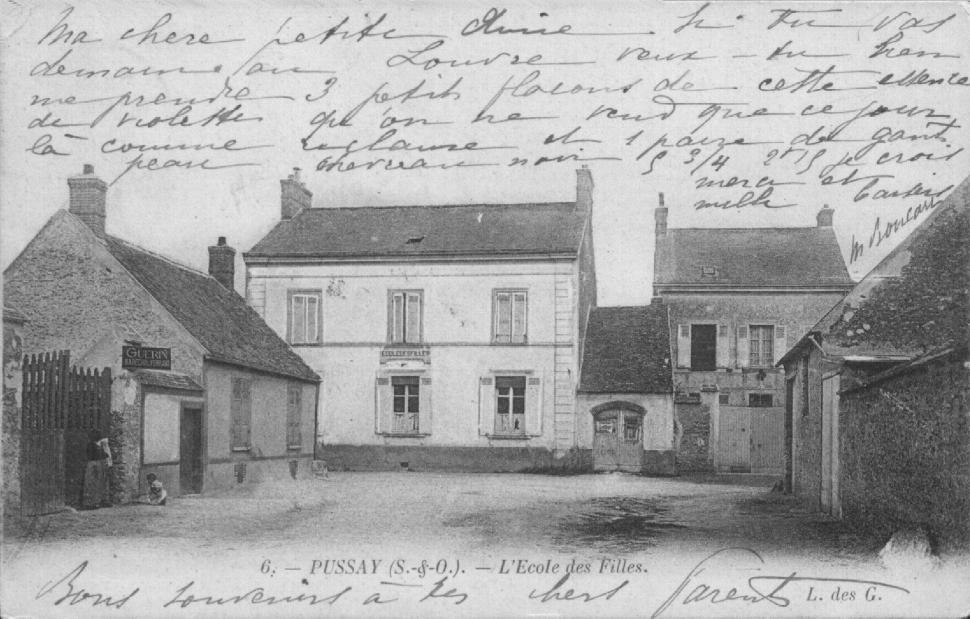 Ma chere petite si tu vas
demain au Louvre veux-tu bien
me prendre 3 petits flacons de cette essence
de violettes qu'on ne vend que ce jour
là comme reclame et 1 paire de gants
peau chevreau noir 5 3/4 je crois
merci et
mille baisers
GUERIN
ECOLE DES FILLES
6. — PUSSAY (S.-&-O.). — L'Ecole des Filles.
Bons souvenirs à tes chers parents
L. des G.